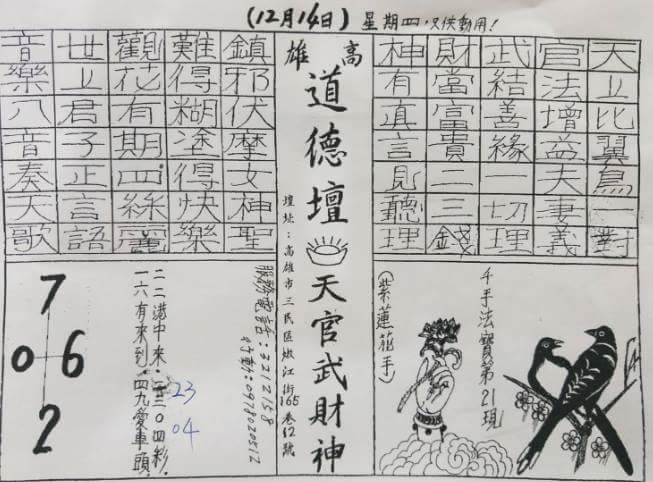 (12月14日) 星期四，只供動用！
天上比翼鳥一對
官法增益夫妻義
武結善緣一切理
財當富貴二三錢
神有真言見聽理
高雄
道德壇
天官武財神
壇址：高雄市三民區嫩江街165巷12號
鎮邪伏摩女神聖
難得糊塗得快樂
觀花有期四絲麗
世上君子正言語
音樂八音奏天歌
千手法寶第21現
(紫蓮花手)
服務電話：3212158
行動：0978020512
二二港中來．二三0四彩．
一六有來到．四九愛車頭．
23
04
7
0 6
2